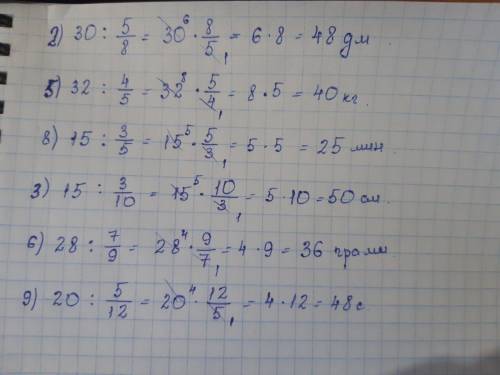 2) 30 : 5/8 = 30⁶ · 8/5₁ = 6 · 8 = 48 дм
5) 32 : 4/5 = 32⁸ · 5/4₁ = 8 · 5 = 40 кг.
8) 15 : 3/5 = 15⁵ · 5/3₁ = 5 · 5 = 25 мин.
3) 15 : 3/10 = 15⁵ · 10/3₁ = 5 · 10 = 50 см.
6) 28 : 7/9 = 28⁴ · 9/7₁ = 4 · 9 = 36 грамм.
9) 20 : 5/12 = 20⁴ · 12/5₁ = 4 · 12 = 48 с